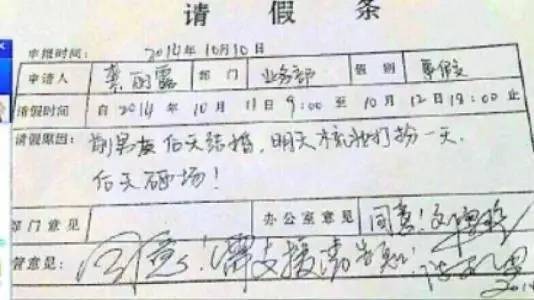 请假条
申报时间: 2014年10月10日
申请人 龚丽露 部门 业务部 假别 事假
请假时间 自2014年10月11日9:00至10月12日18:00止
请假原因: 前男友后天结婚,明天梳妆打扮一天,
后天砸场!
部门意见 办公室意见 同意!
管意见: 同意!需支援请告知!
2014